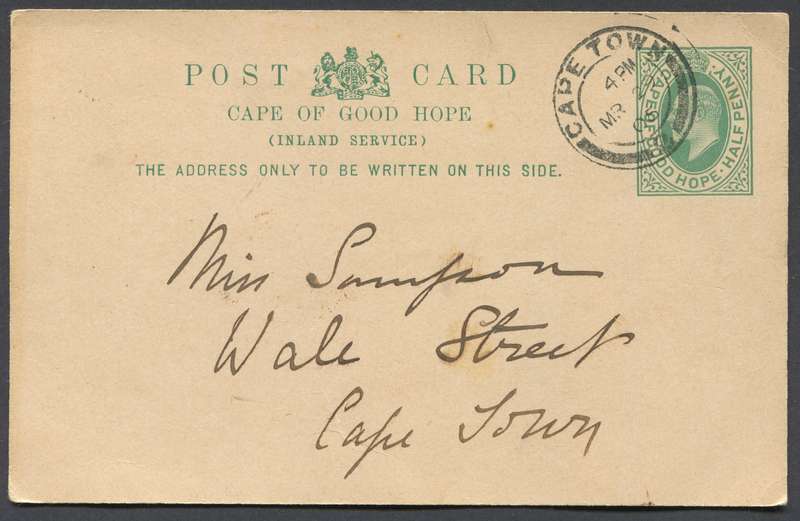 POST CARD
CAPE OF GOOD HOPE
(INLAND SERVICE)
THE ADDRESS ONLY TO BE WRITTEN ON THIS SIDE.
CAPE TOWN
4 PM
MR
06
CAPE OF GOOD HOPE · HALF PENNY ·
Miss Sampson
Wale Street
Cape Town